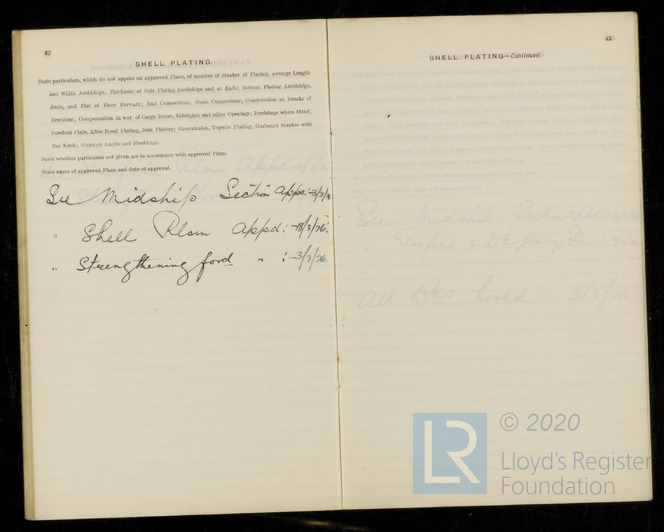 42
SHELL PLATING.
State particulars, which do not appear on approved Plans, of number of Strakes of Plating, average Length
and Width Amidships; Thickness of Side Plating Amidships and at Ends; Bottom Plating Amidships,
Ends, and Flat of Floor Forward; End Connections; Seam Connections; Construction at Breaks of
Erections; Compensation in way of Cargo Doors, Sidelights and other Openings; Doublings where fitted;
Forefoot Plate, After Hood Plating, Boss Plating; Sheerstrakes, Topside Plating, Garboard Strakes with
Bar Keels; Gunwale Angles and Mouldings.
State whether particulars not given are in accordance with approved Plans.
State names of approved Plans and date of approval.
See Midship Section Appd:-3/3/26
" Shell Plan Appd:-18/3/26.
" Strengthening ford " :-3/3/26.
43
SHELL PLATING—Continued.
See Midship Section appd
All Dks hosed:
LR
© 2020
Lloyd's Register
Foundation